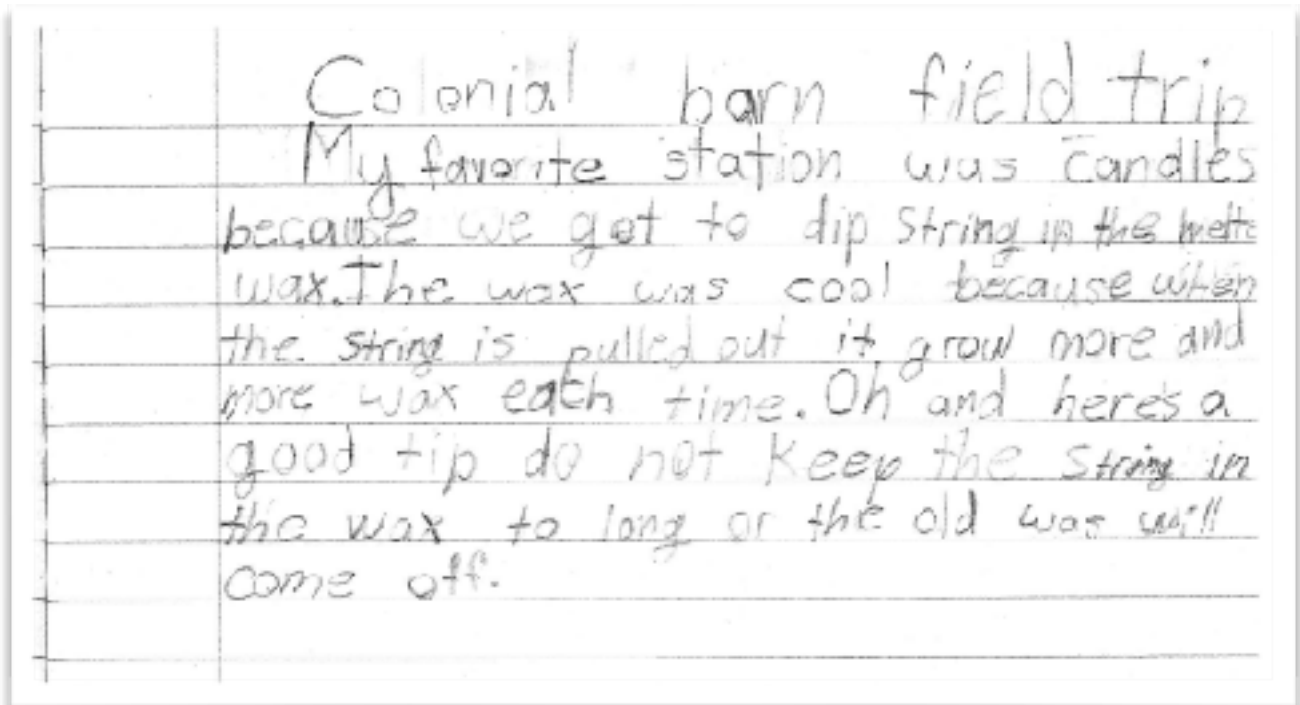 Colonial barn field trip
My favorite station was candles
because we got to dip string in the
wax. The wax was cool because when
the string is pulled out it grow more and
more wax each time. Oh and here's a
good tip do not keep the string in
the wax to long or the old was will
come off.